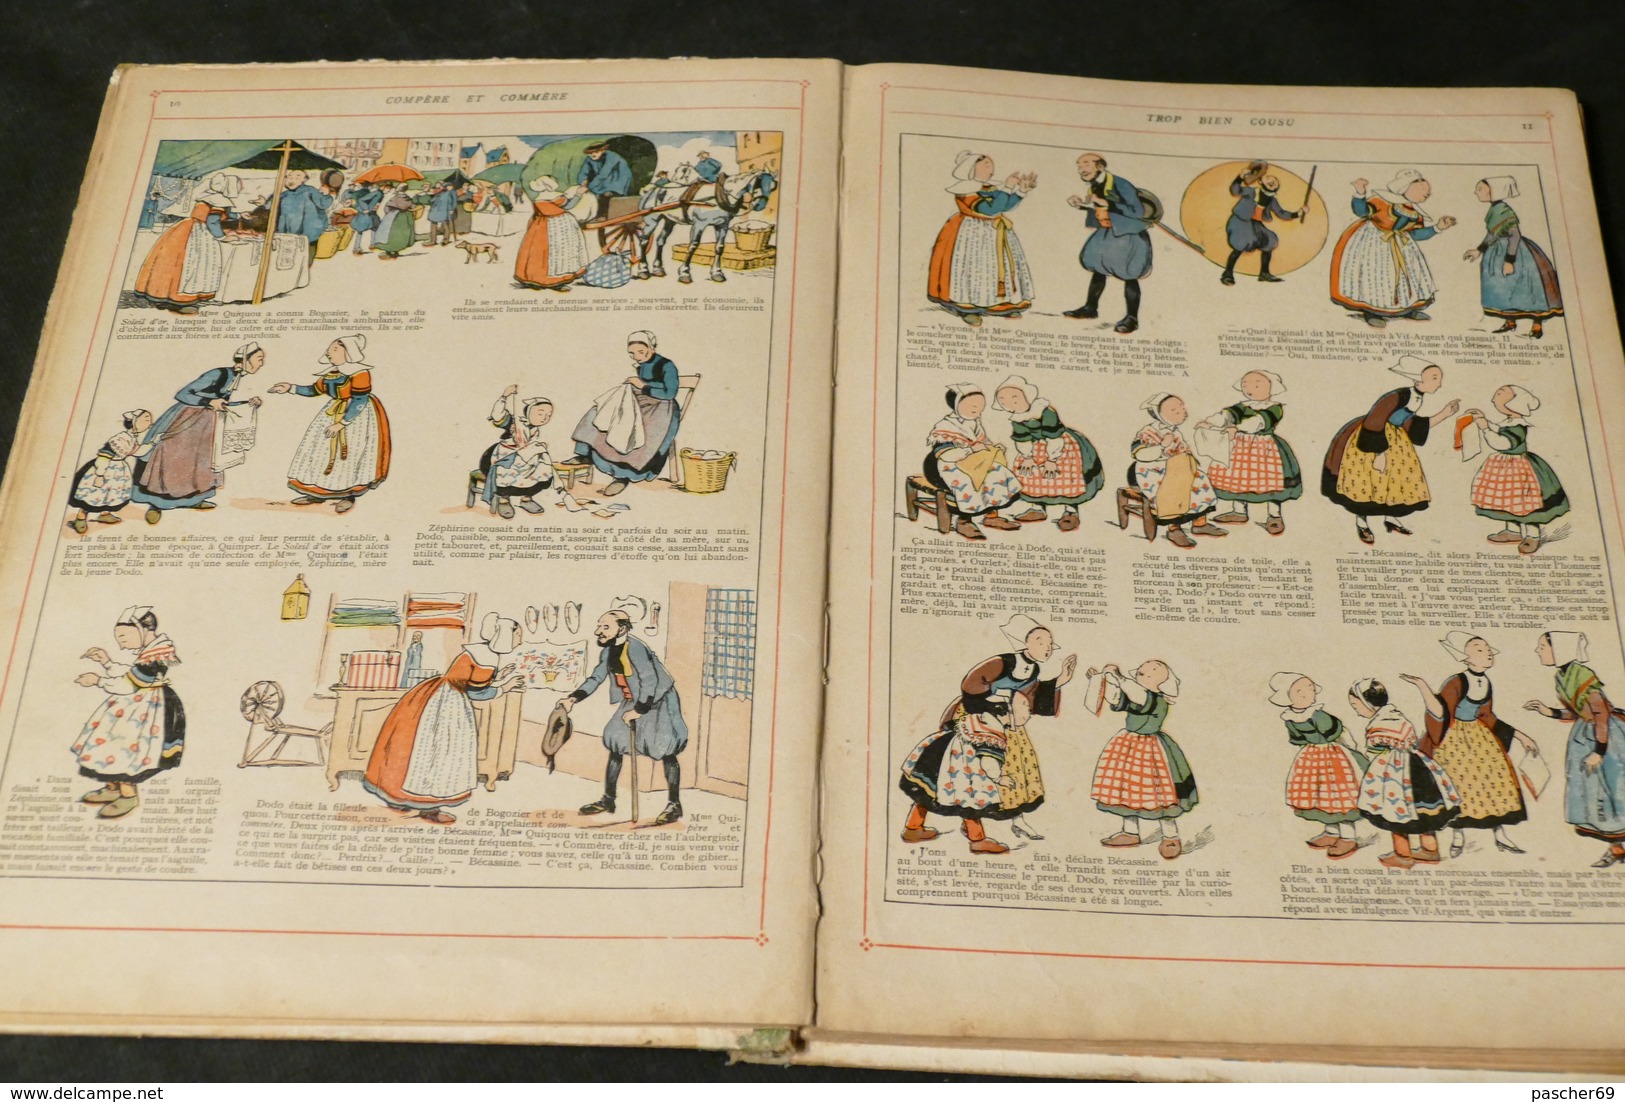 10
COMPÈRE ET COMMÈRE
Mme Quiquou a connu Bogozier, le patron du
Soleil d'or, lorsque tous deux étaient marchands ambulants, elle
d'objets de lingerie, lui de cidre et de victuailles variées. Ils se ren-
contraient aux foires et aux pardons.
Ils se rendaient de menus services ; souvent, par économie, ils
entassaient leurs marchandises sur la même charrette. Ils devinrent
vite amis.
Ils firent de bonnes affaires, ce qui leur permit de s'établir, à
peu près à la même époque, à Quimper. Le Soleil d'or était alors
fort modeste ; la maison de confection de Mme Quiquou l'était
plus encore. Elle n'avait qu'une seule employée, Zéphirine, mère
de la jeune Dodo.
Zéphirine cousait du matin au soir et parfois du soir au matin.
Dodo, paisible, somnolente, s'asseyait à côté de sa mère, sur un
petit tabouret, et, pareillement, cousait sans cesse, assemblant sans
utilité, comme par plaisir, les rognures d'étoffe qu'on lui abandon-
nait.
« Dans not' famille,
disait non sans orgueil
Zéphirine on naît autant di-
re l'aiguille à la main. Mes huit
sœurs sont cou- turières, et not'
frère est tailleur. » Dodo avait hérité de la
vocation familiale. C'est pourquoi elle cou-
sait constamment, machinalement. Aux ra-
res moments où elle ne tenait pas l'aiguille,
sa main faisait encore le geste de coudre.
Dodo était la filleule de Bogozier et de Mme Qui-
quou. Pour cette raison, ceux- ci s'appelaient com- père et
commère. Deux jours après l'arrivée de Bécassine, Mme Quiquou vit entrer chez elle l'aubergiste,
ce qui ne la surprit pas, car ses visites étaient fréquentes. — « Commère, dit-il, je suis venu voir
ce que vous faites de la drôle de p'tite bonne femme ; vous savez, celle qu'à un nom de gibier...
Comment donc ?... Perdrix ?... Caille ?... — Bécassine. — C'est ça, Bécassine. Combien vous
a-t-elle fait de bêtises en ces deux jours ? »
TROP BIEN COUSU
11
— « Voyons, fit Mme Quiquou en comptant sur ses doigts :
le coucher un ; les bougies, deux ; le lever, trois ; les points de-
vants, quatre ; la couture mordue, cinq. Ça fait cinq bêtises.
— Cinq en deux jours, c'est bien ; c'est très bien ; je suis en-
chanté. J'inscris cinq sur mon carnet, et je me sauve. A
bientôt, commère. »
— « Quel original ! dit Mme Quiquou à Vif-Argent qui passait. Il
s'intéresse à Bécassine, et il est ravi qu'elle fasse des bêtises. Il faudra qu'il
m'explique ça quand il reviendra... A propos, en êtes-vous plus contente, de
Bécassine ? — Oui, madame, ça va mieux, ce matin. »
Ça allait mieux grâce à Dodo, qui s'était
improvisée professeur. Elle n'abusait pas
des paroles. « Ourlet », disait-elle, ou « sur-
get », ou « point de chaînette », et elle exé-
cutait le travail annoncé. Bécassine re-
gardait et, chose étonnante, comprenait.
Plus exactement, elle retrouvait ce que sa
mère, déjà, lui avait appris. En somme,
elle n'ignorait que les noms.
Sur un morceau de toile, elle a
exécuté les divers points qu'on vient
de lui enseigner, puis, tendant le
morceau à son professeur : — « Est-ce
bien ça, Dodo ? » Dodo ouvre un œil,
regarde un instant et répond :
— « Bien ça ! », le tout sans cesser
elle-même de coudre.
— « Bécassine, dit alors Princesse, puisque tu es
maintenant une habile ouvrière, tu vas avoir l'honneur
de travailler pour une de mes clientes, une duchesse. »
Elle lui donne deux morceaux d'étoffe qu'il s'agit
d'assembler, en lui expliquant minutieusement ce
facile travail. « J'vas vous perler ça, » dit Bécassine.
Elle se met à l'œuvre avec ardeur. Princesse est trop
pressée pour la surveiller. Elle s'étonne qu'elle soit si
longue, mais elle ne veut pas la troubler.
« J'ons fini », déclare Bécassine
au bout d'une heure, et elle brandit son ouvrage d'un air
triomphant. Princesse le prend. Dodo, réveillée par la curio-
sité, s'est levée, regarde de ses deux yeux ouverts. Alors elles
comprennent pourquoi Bécassine a été si longue.
Elle a bien cousu les deux morceaux ensemble, mais par les
côtés, en sorte qu'ils sont l'un par-dessus l'autre au lieu d'être
à bout. Il faudra défaire tout l'ouvrage. — « Une vraie paysanne
Princesse dédaigneuse. On n'en fera jamais rien. — Essayons
répond avec indulgence Vif-Argent, qui vient d'entrer.
pascher69